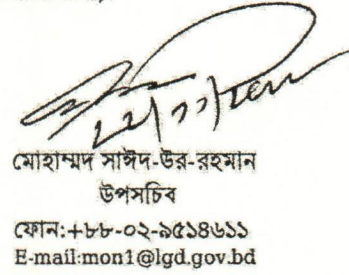 মোহাম্মদ সাঈদ-উর-রহমান
উপসচিব
ফোন:+৮৮-০২-৯৫১৪৬১১
E-mail:mon1@lgd.gov.bd